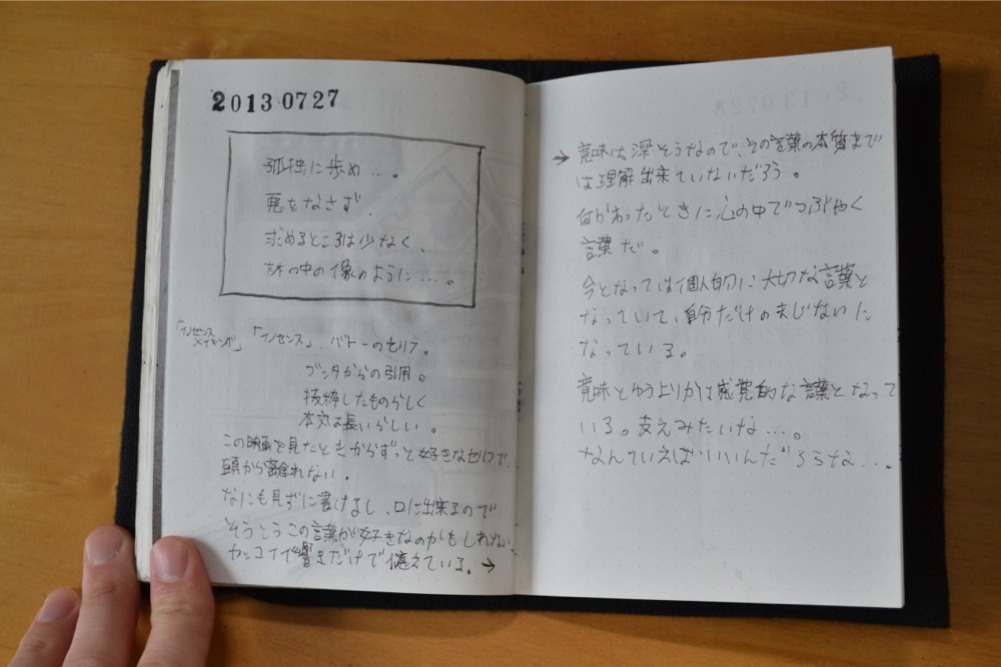 20130727
孤独に歩め…。
悪をなさず
求めるところは少なく、
林の中の像のように…。
「イノセンス
メイキング」
「イノセンス」 バトーのセリフ。
ブッダからの引用。
抜粋したものらしく
本文は長いらしい。
この映画を見たときからずっと好きなセリフで、
頭から離れない。
なにも見ずに書けるし、口に出来るので
そうとうこの言葉が好きなのかもしれない。
カッコイイ響きだけで憶えている。→
→ 意味は深そうなので、その言葉の本質まで
は理解出来ていないだろう。
何かあったときに心の中でつぶやく
言葉だ。
今となっては個人的に大切な言葉と
なっていて、自分だけのまじないに
なっている。
意味とゆうよりかは感覚的な言葉となって
いる。支えみたいな…。
なんていえばいいんだろうな…。